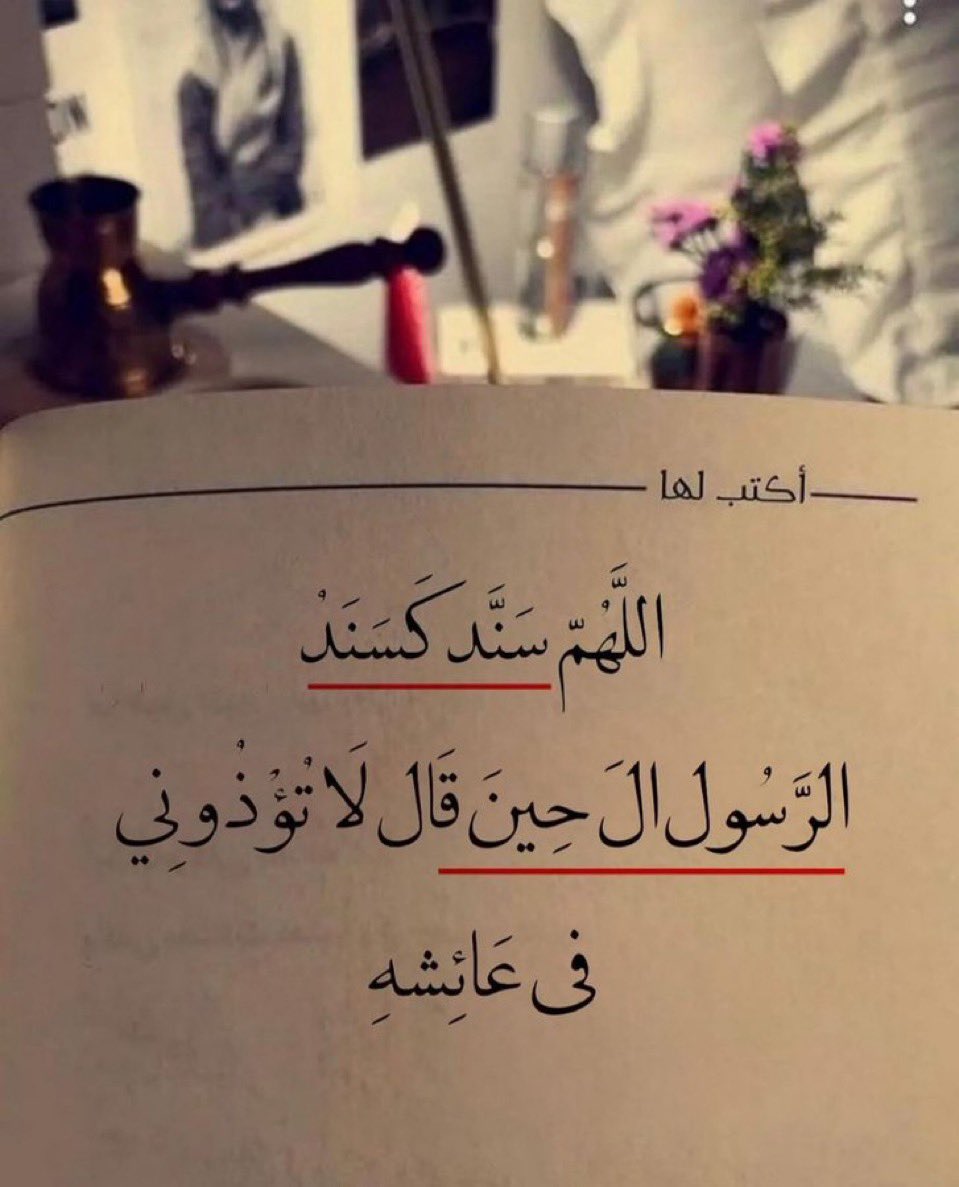 أكتب لها
اللَّهُمّ سَنَّد كَسَنَدْ
الرَّسُول الَ حِينَ قَال لَا تُؤْذُونِي
فى عَائِشهِ